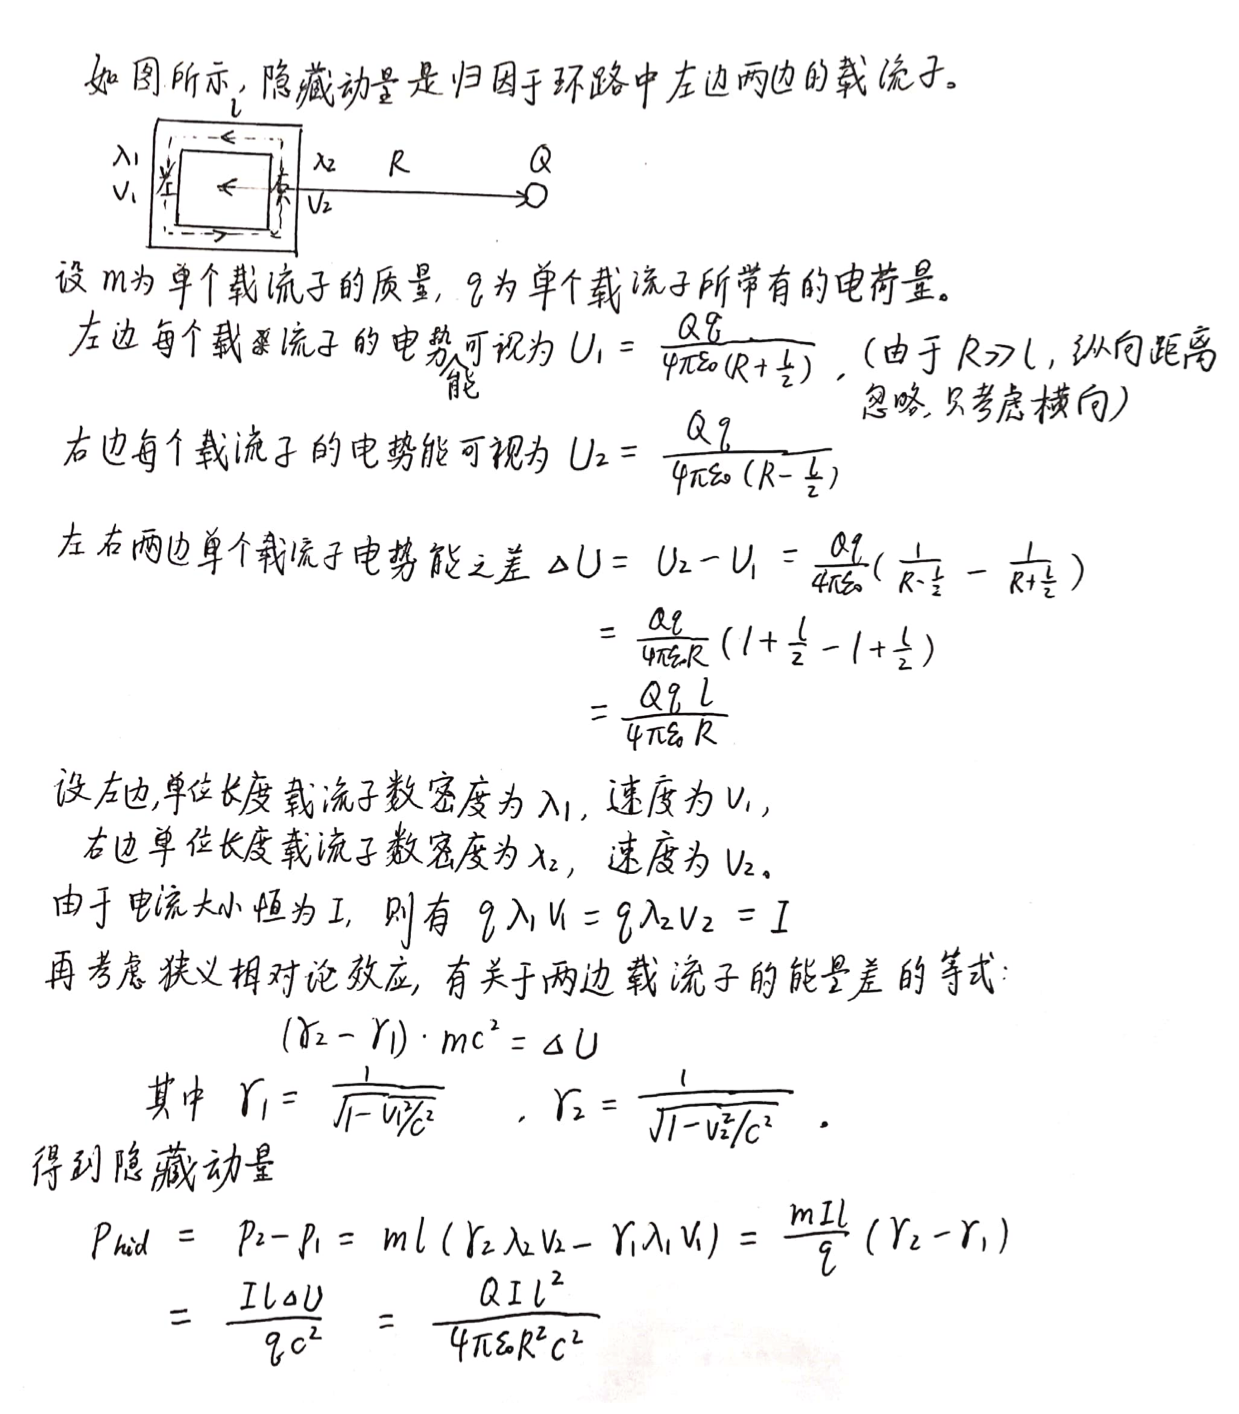 如图所示，隐藏动量是归因于环路中左边两边的载流子。
l
λ1 左 右 λ2 R Q
V1 V2
设m为单个载流子的质量，q为单个载流子所带有的电荷量。
左边每个载流子的电势能可视为 U₁ = Qq/(4πε₀(R+l/2))，（由于R>>l，纵向距离
忽略，只考虑横向）
右边每个载流子的电势能可视为 U₂ = Qq/(4πε₀(R-l/2))
左右两边单个载流子电势能之差 ΔU = U₂-U₁ = Qq/(4πε₀)(1/(R-l/2) - 1/(R+l/2))
= Qq/(4πε₀R)(1+l/2-1+l/2)
= Qql/(4πε₀R)
设左边,单位长度载流子数密度为λ₁，速度为V₁，
右边单位长度载流子数密度为λ₂，速度为V₂。
由于电流大小恒为I，则有 qλ₁V₁=qλ₂V₂=I
再考虑狭义相对论效应，有关于两边载流子的能量差的等式：
(γ₂-γ₁)·mc²=ΔU
其中 γ₁ = 1/√(1-V₁²/c²)，γ₂ = 1/√(1-V₂²/c²)．
得到隐藏动量
Phid = P₂-P₁ = ml(γ₂λ₂V₂-γ₁λ₁V₁) = mIl/q (γ₂-γ₁)
= IlΔU/(qc²) = QIl²/(4πε₀R²c²)